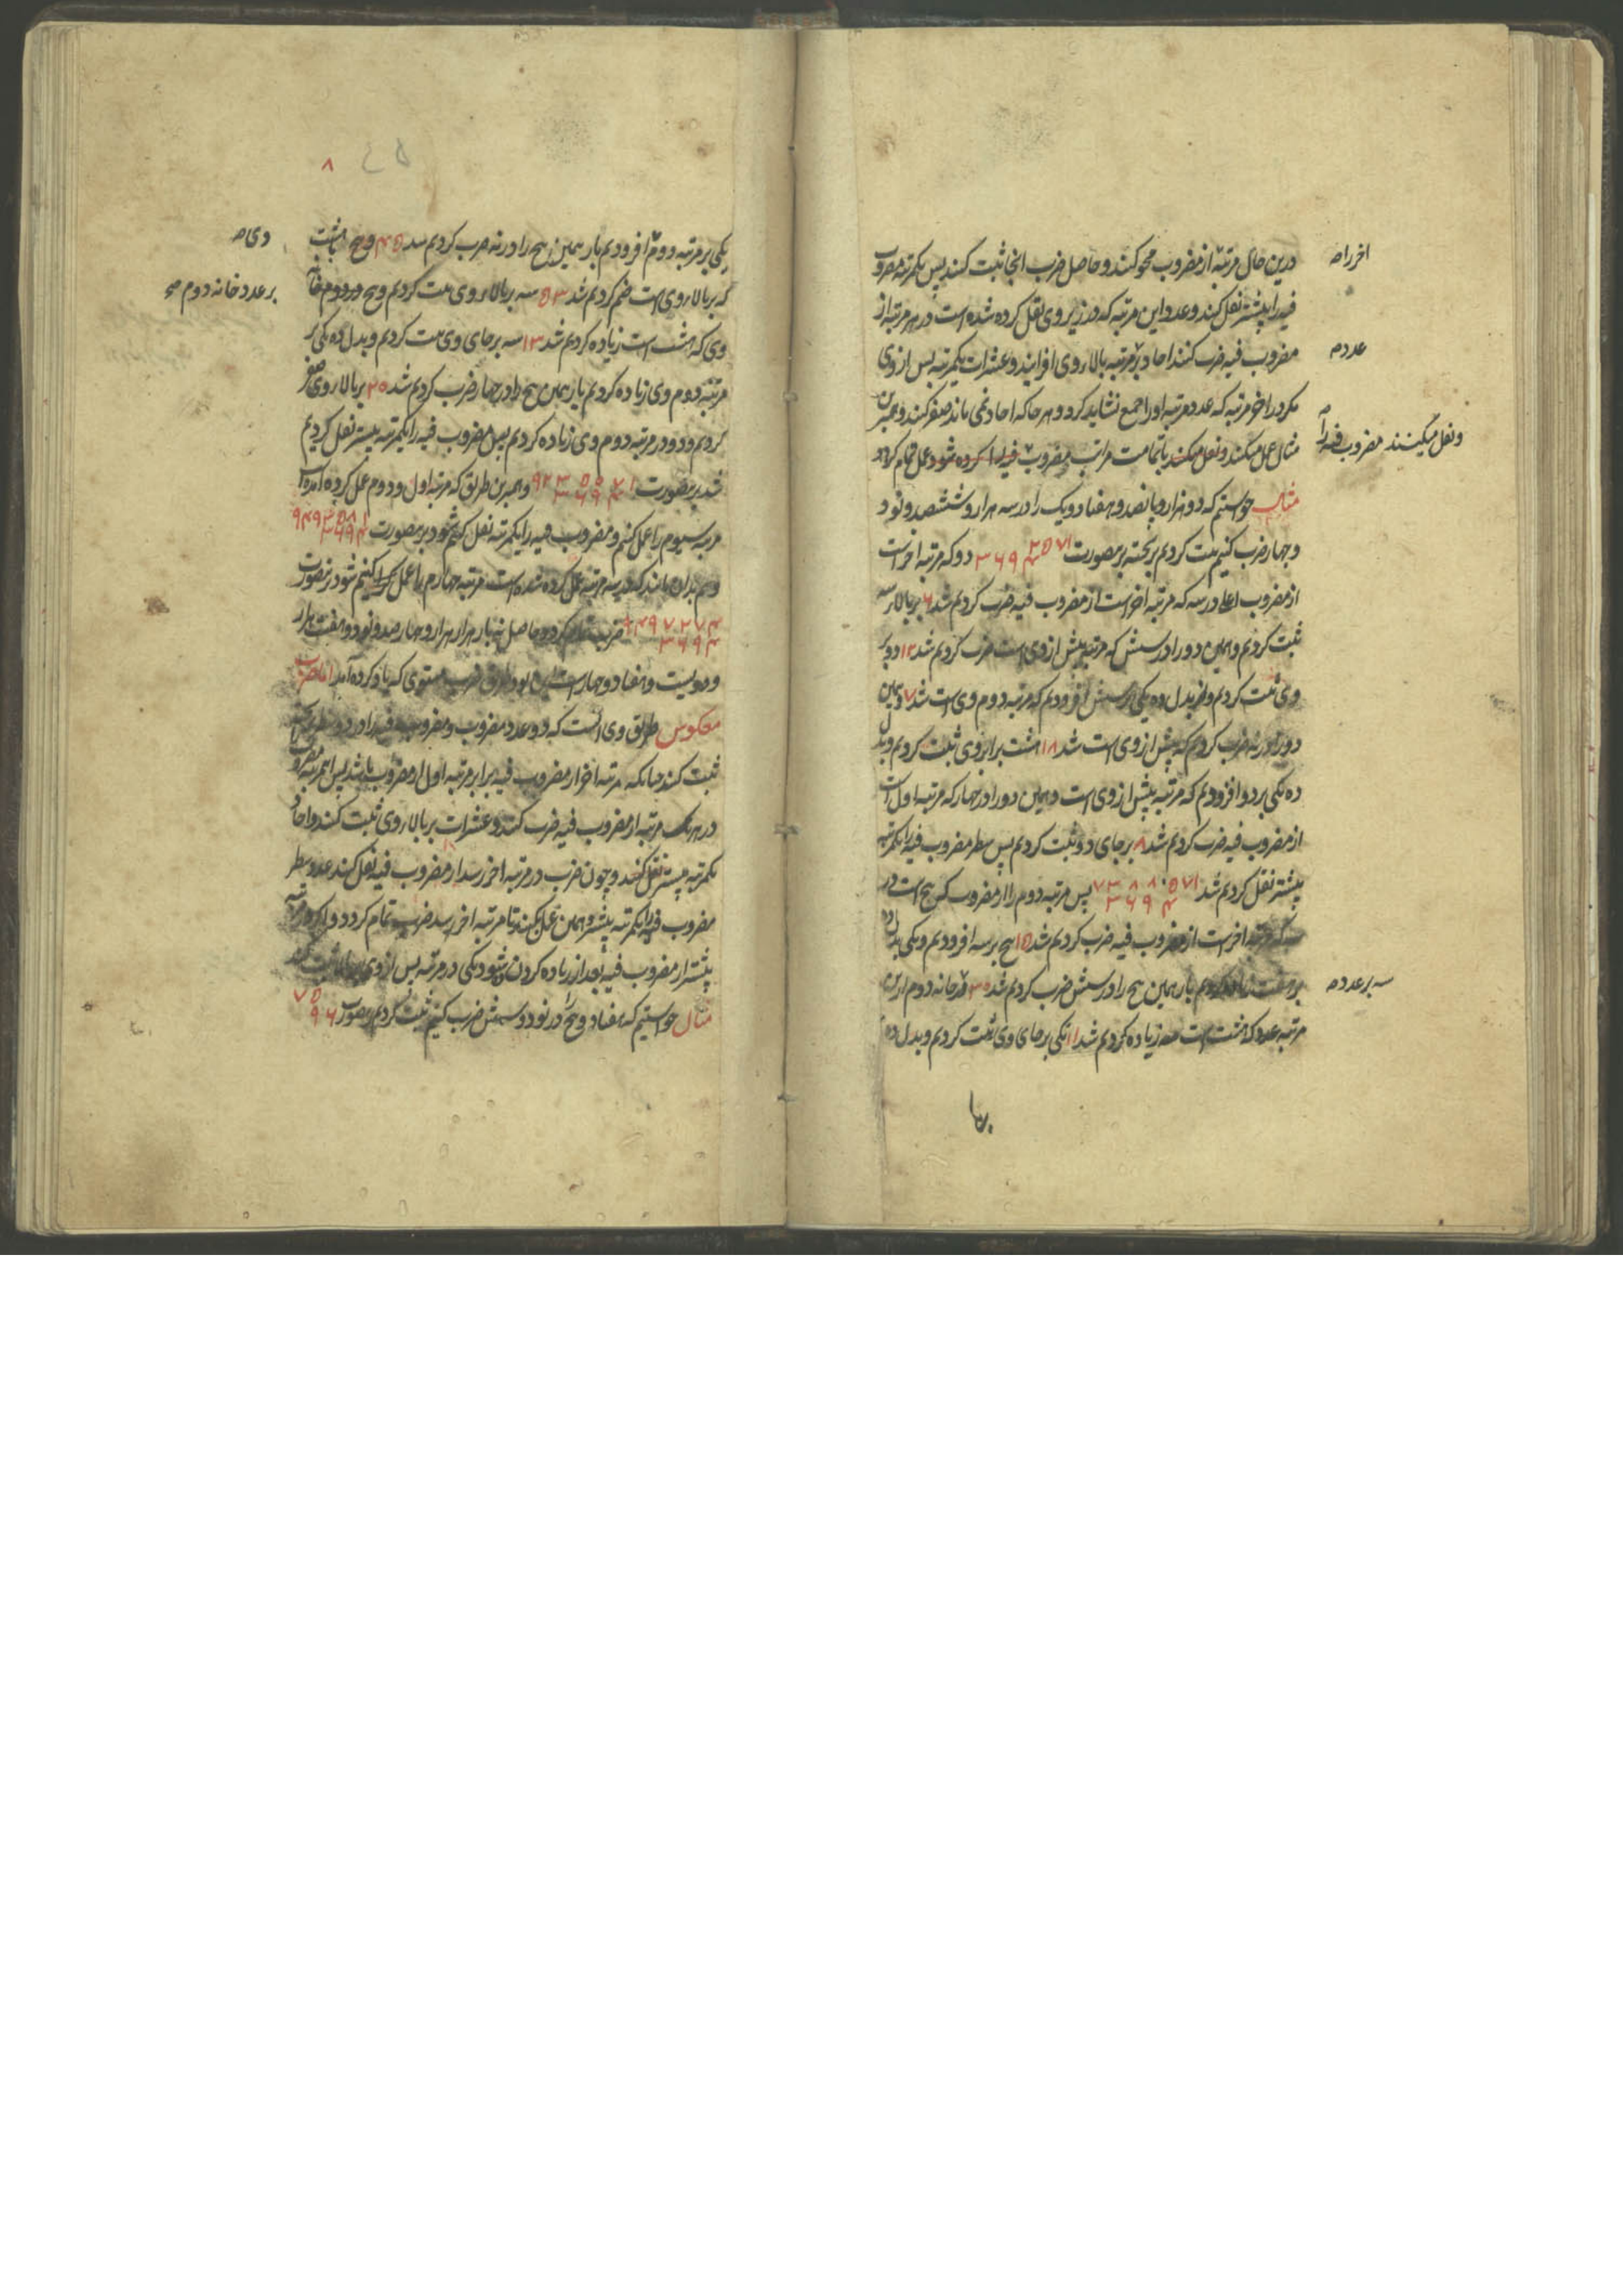 درین حال مرتبه از مضروب محو کنند و حاصل ضرب انجا ثبت کنند پس یکمرتبه مضروب
فیه را پیشتر نقل کنند و عدد این مرتبه که در زیر وی نقل کرده شده است در هر مرتبه از
مضروب فیه ضرب کنند احاد بر مرتبه بالا روی افزایند و عشرات یکمرتبه پس از وی
مکر در اخر مرتبه که عدد مرتبه او را جمع نشاید کرد و هر جا که احاد نمی ماند صفر کنند و همبرین
مثال عمل میکنند و نقل میکنند تا بتمامت مراتب مضروب فیه را کرده شود عمل تمام کردد
مثال خواستیم که دو هزار و پانصد و هفتاد و یک را در سه هزار و ششصد و نود
و چهار ضرب کنیم ثبت کردیم بر تخته برینصورت ۲۵۷۱ ۳۶۹۴ دو که مرتبه اخر است
از مضروب اعلا در سه که مرتبه اخر است از مضروب فیه ضرب کردیم شد ۶ بر بالا سه
ثبت کردیم و همین دو را در شش که مرتبه پیش از وی است ضرب کردیم شد ۱۲ دو بر
وی ثبت کردیم و از بدل ده یکی بر شش افزودیم که مرتبه دوم وی است شد ۷ و همین
دو را در نه ضرب کردیم که پیش از وی است شد ۱۸ هشت برابر وی ثبت کردیم و بدل
ده یکی بر دو افزودیم که مرتبه پیش از وی است و همین دو را در چهار که مرتبه اول است
از مضروب فیه ضرب کردیم شد ۸ بر جای دو ثبت کردیم پس سطر مضروب فیه را یکمرتبه
پیشتر نقل کردیم شد ۷۳۸۸۵۷۱ ۳۶۹۴ پس مرتبه دوم را از مضروب که پنج است در
سه که مرتبه اخر است از مضروب فیه ضرب کردیم شد ۱۵ پنج بر سه افزودیم و یکی بدل ده
بر هفت زیاده کردیم باز همین پنج را در شش ضرب کردیم شد ۳۰ در خانه دوم از این
مرتبه عدد که هشت است سه زیاده کردیم شد ۱۱ یکی بر جای وی ثبت کردیم و بدل ده
اخر را صح
عدد صح
و نقل میکنند مضروب فیه را صح
سه بر عدد صح
۸
یکی بر مرتبه دوم افزودیم باز همین پنج را در نه ضرب کردیم شد ۴۵ و پنج بهشت
که بر بالا روی است ضم کردیم شد ۵۳ سه بر بالا روی ثبت کردیم و پنج در دوم خانه
وی که هشت است زیاده کردیم شد ۱۳ سه بر جای وی ثبت کردیم و بدل ده یکی بر
مرتبه دوم وی زیاده کردیم باز همین پنج را در چهار ضرب کردیم شد ۲۰ بر بالا روی صفر
کردیم و دو در مرتبه دوم وی زیاده کردیم پس مضروب فیه را یکمرتبه پیشتر نقل کردیم
شد برینصورت ۹۲۳۵۵۷۱ ۳۶۹۴ و همبرین طریق که مرتبه اول و دوم عمل کرده آمد
مرتبه سیوم را عمل کنیم و مضروب فیه را یکمرتبه نقل کنیم شود برینصورت ۹۴۹۳۵۸۱ ۳۶۹۴
و هم بدان ماند که در سه مرتبه عمل کرده شده است مرتبه چهارم را عمل کنیم شود برینصورت
۹۴۹۷۲۷۴ ۳۶۹۴ ضرب تمام کردد و حاصل نه بار هزار هزار و چهارصد و نود و هفت هزار
و دویست و هفتاد و چهار است این بود طریق ضرب مستوی که یاد کرده آمد اما ضرب
معکوس طریق وی انست که دو عدد مضروب و مضروب فیه را در دو سطر بر تخته
ثبت کنند چنانکه مرتبه اخر از مضروب فیه برابر مرتبه اول از مضروب باشد پس اخر مرتبه مضروب
در هر یک مرتبه از مضروب فیه ضرب کنند و عشرات بر بالا روی ثبت کنند و احاد
یکمرتبه پیشتر نقل کنند و چون ضرب در مرتبه اخر رسد از مضروب فیه نقل کنند عدد سطر
مضروب فیه را یکمرتبه پیشتر و همین عمل کنند تا مرتبه اخر رسد ضرب تمام کردد و اکر مرتبه
پیشتر از مضروب فیه بعد از زیاده کردن شود یکی در مرتبه پس از وی بالا ثبت کنند
مثال خواستیم که هفتاد و پنج را در نود و شش ضرب کنیم ثبت کردیم برینصورت ۷۵ ۹۶
وی صح
بر عدد خانه دوم صح